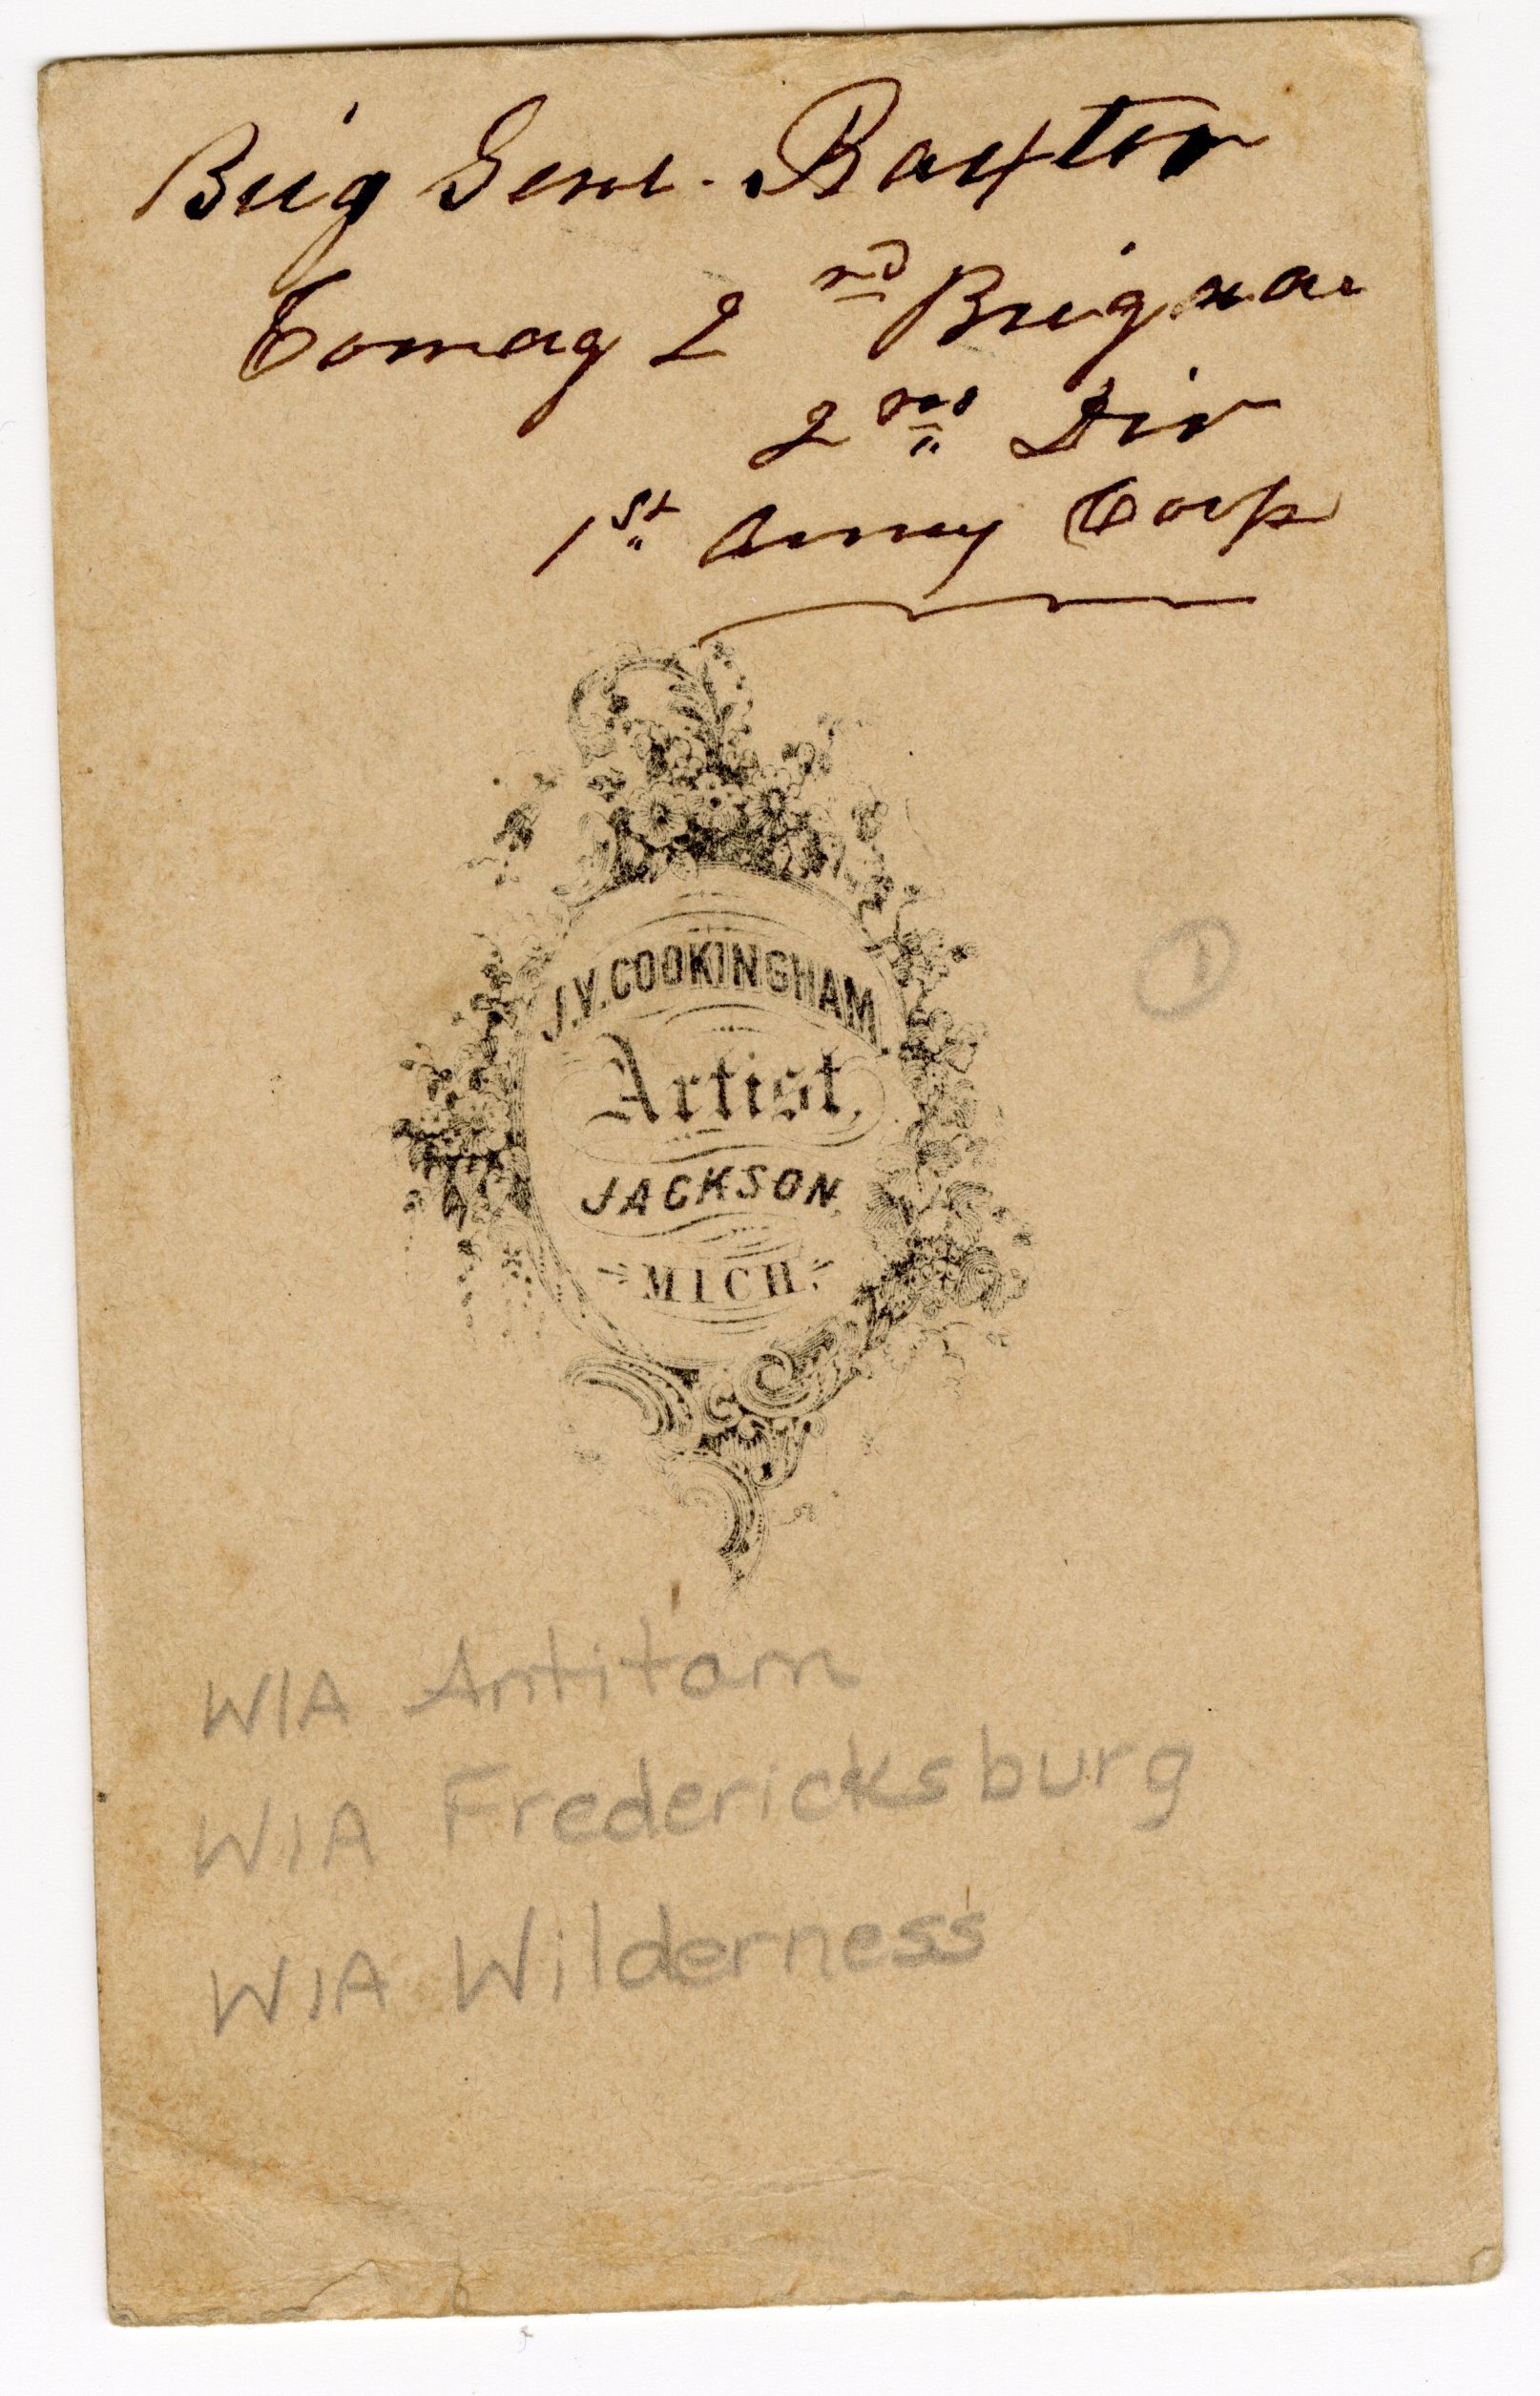 Brig Genl. Baxter
Comdg 2nd Brigade
2nd Div
1st Army Corps
J.V. COOKINGHAM.
Artist,
JACKSON,
MICH.
1
WIA Antitam
WIA Fredericksburg
WIA Wilderness